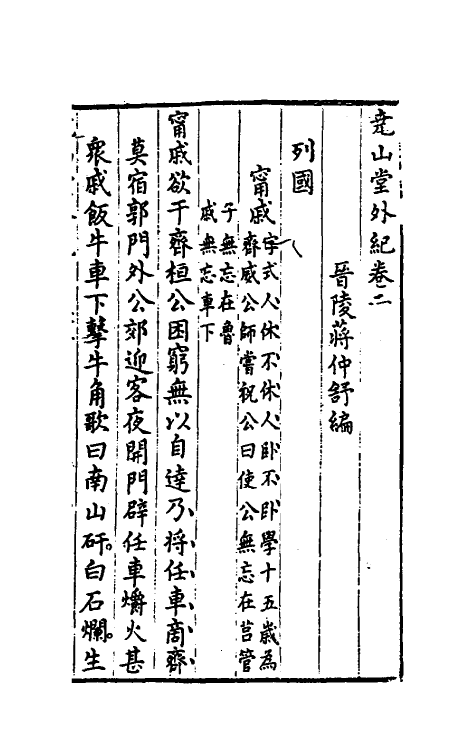 堯山堂外紀卷二
晉陵蔣仲舒編
列國
甯戚
字武人休不休人卧不卧學十五歲為
齊威公師嘗祝公曰使公無忘在莒管
子無忘在魯
戚無忘車下
甯戚欲干齊桓公困窮無以自達乃將任車商齊
莫宿郭門外公郊迎客夜開門辟任車爝火甚
衆戚飯牛車下擊牛角歌曰南山矸。白石爛。生